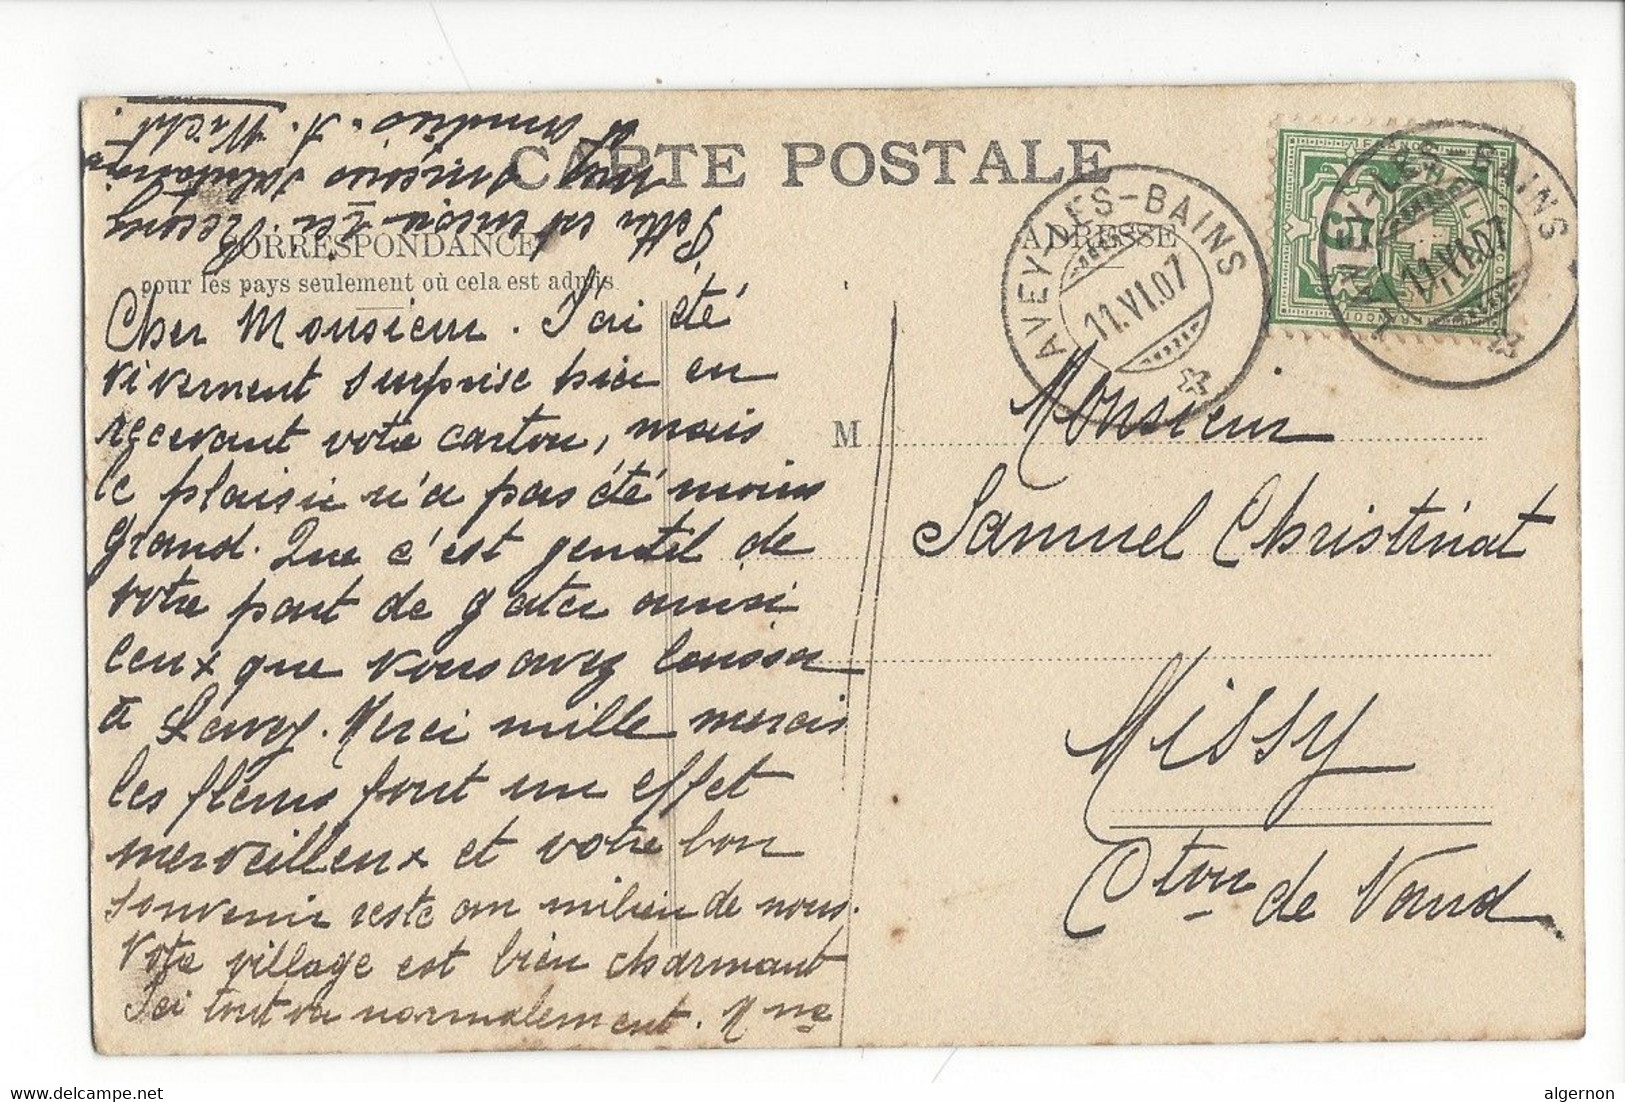 CARTE POSTALE
CORRESPONDANCE
pour les pays seulement où cela est admis.
ADRESSE
Cher Monsieur. J'ai été
vivement surprise hier en
recevant votre carton, mais
le plaisir n'a pas été moins
grand. Que c'est gentil de
votre part de gater ainsi
ceux que vous avez laissés
à Lavey. Merci mille mercis
les fleurs font un effet
merveilleux et votre bon
souvenir reste au milieu de nous.
Votre village est bien charmant
Ici tout va normalement. Mme
est encore ici Recevez
salutations
A. Wicht.
M
Monsieur
Samuel Christinat
Missy
Cton de Vaud
LAVEY-LES-BAINS
11.VI.07
LAVEY-LES-BAINS
11.VI.07
HELVETIA
5
algernon
delcampe.net